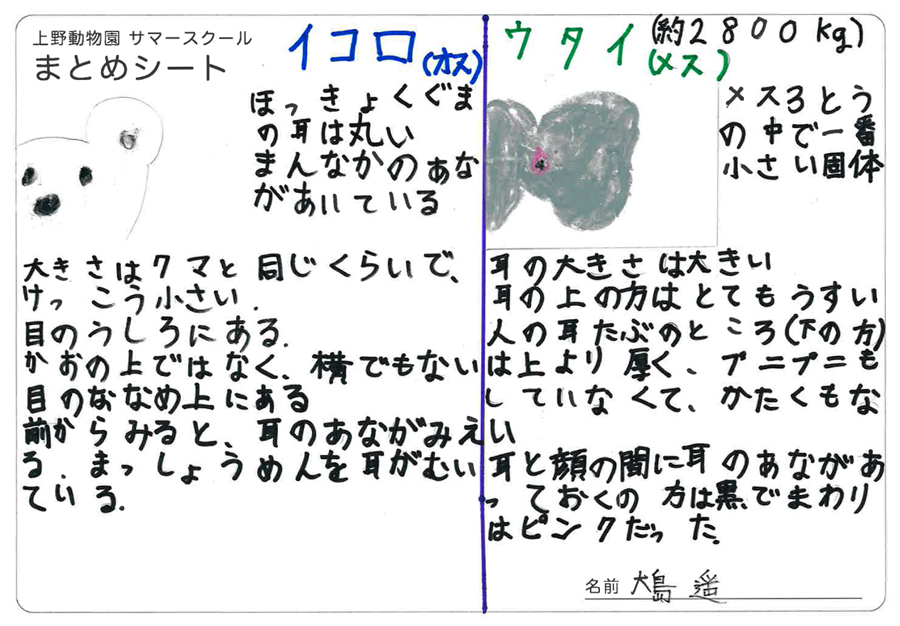 上野動物園 サマースクール
まとめシート
イコロ(オス)
ほっきょくぐま
の耳は丸い
まんなかのあな
があいている
大きさはクマと同じくらいで、
けっこう小さい.
目のうしろにある.
かおの上ではなく、横でもない
目のななめ上にある
前からみると、耳のあながみえ
る.まっしょうめんを耳がむい
ている.
ウタイ(約2800kg)
(メス)
メス3とう
の中で一番
小さい固体
耳の大きさは大きい
耳の上の方はとてもうすい
人の耳たぶのところ(下の方)
は上より厚く、プニプニも
していなくて、かたくもな
い
耳と顔の間に耳のあながあ
っておくの方は黒でまわり
はピンクだった.
名前 大島 遥